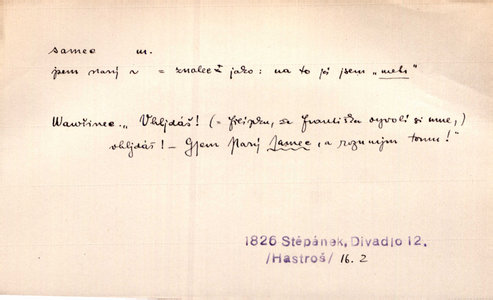 samec m.
jsem starý s = znalec jako: na to já jsem „
Wawřinec. „Uhljdáš! (= že Františka vyvolí si mne,)
uhljdáš! – Gsem starý samec, a rozumjm tomu!"
1826 Stěpánek, Divadlo 12.
/Hastroš/ 16.2